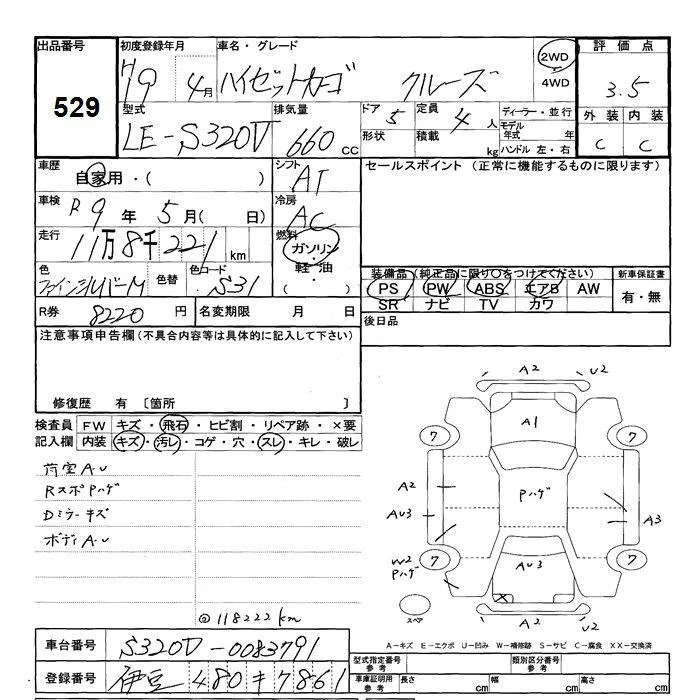 出品番号
529
初度登録年月
H19 4月
車名・グレード
ハイゼットカーゴ クルーズ
2WD
4WD
評価点
3.5
外装 内装
C C
型式
LE-S320V
排気量
660 CC
ドア 5
形状
定員 4 人
積載 kg
ディーラー・並行
モデル年式 年
ハンドル 左・右
車歴
自家用・( )
シフト
AT
セールスポイント (正常に機能するものに限ります)
車検
R9年 5月( 日)
冷房
AC
走行
11万8千221km
燃料
ガソリン・
軽油・
( )
色
ファインシルバーM
色替
色コード
S31
装備品(純正品に限り○をつけてください)
PS PW ABS エアB AW
SR ナビ TV カワ
新車保証書
有・無
R券 8220 円
名変期限 月 日
後日品
注意事項申告欄(不具合内容等は具体的に記入して下さい)
修復歴 有 〔箇所 〕
検査員記入欄
FW キズ・飛石・ヒビ割・リペア跡・×要
内装 キズ・汚レ・コゲ・穴・スレ・キレ・破レ
荷室AU
RスポPハゲ
Dミラーキズ
ボディAU
@118222km
A2 U2
A1
7 7
A2
Pハゲ
AU3
A3
W2
Pハゲ
7 7
AU3
スペア
A2 U2
A-キズ E-エクボ U-凹み W-補修跡 S-サビ C-腐食 XX-交換済
車台番号 S320V-0083791
型式指定番号
参考
類別区分番号
参考
登録番号 伊豆 480 キ 7861
車庫証明用
参考
長さ cm 幅 cm 高さ cm